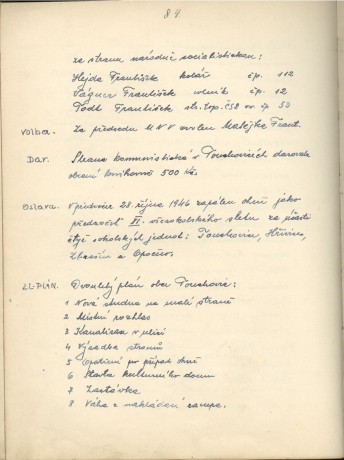 84.
za stranu národně socialistickou:
Hejda František kolář čp. 112
Ságner František rolník čp. 12
Tödl František str. top. ČSD čp 50
Volba. Za předsedu MNV zvolen Matějka Frant.
Dar. Strana komunistická v Touchovicích darovala
obecní knihovně 500 Kčs.
Oslava. V předvečer 28. října 1946 zapálen oheň jako
předzvěst XI. všesokolského sletu za účasti
čtyř sokolských jednot: Touchovic, Hřivic,
a Opočna.
2L-PLÁN. Dvouletý plán obce Touchovic:
1 Nová studna na malé straně
2 Místní rozhlas
3 Kanalisace v ulici
4 Výsadba stromů
5 Opatření pro případ ohně
6 Stavba kulturního domu
7 Zastávka
8 Váha a nakládací rampa.